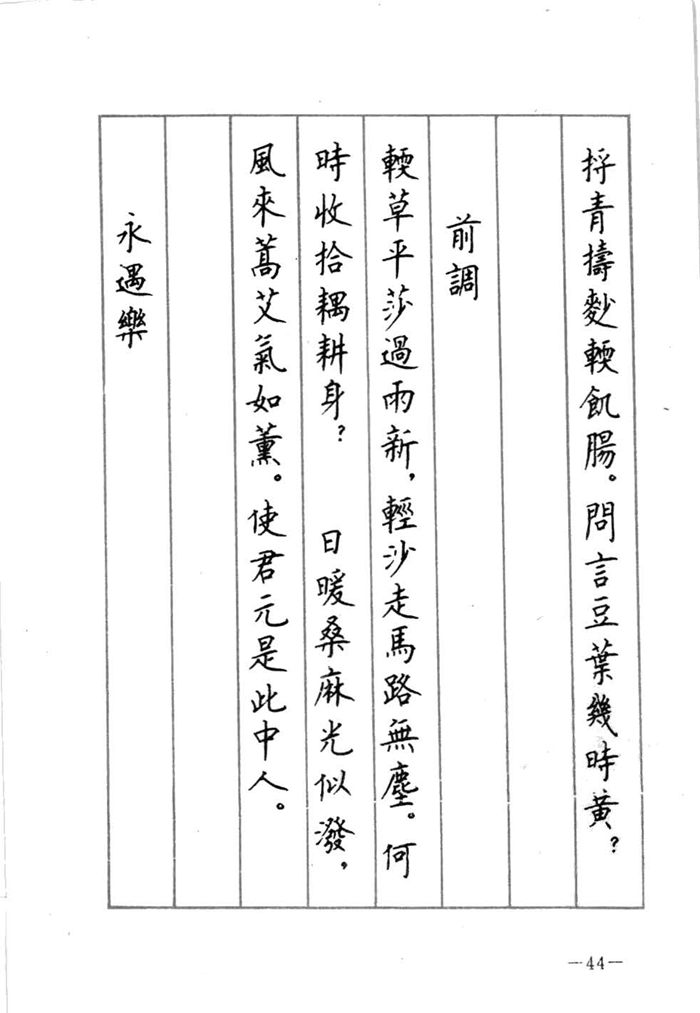 捋青擣麨輭飢腸。問言豆葉幾時黃？
前調
輭草平莎過雨新，輕沙走馬路無塵。何
時收拾耦耕身？　日暖桑麻光似潑，
風來蒿艾氣如薰。使君元是此中人。
永遇樂
—44—